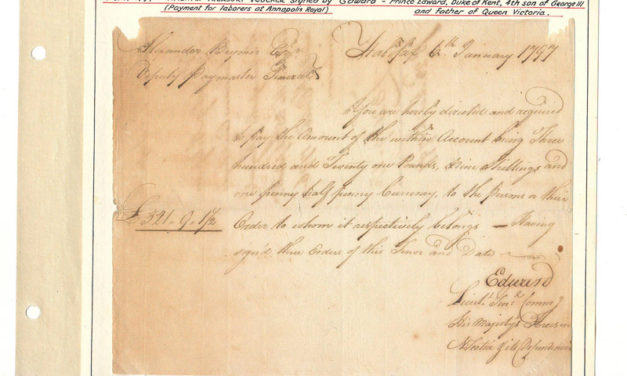 TREASURY VOUCHER signed by "Edward" - Prince Edward, Duke of Kent, 4th son of George III
(Payment for laborers at Annapolis Royal) and Father of Queen Victoria.
Halifax 6th January 1797
Deputy Paymaster General
You are hereby directed and required
to pay the Amount of the within Account being Three
hundred and Twenty one Pounds, Nine Shillings and
one penny half penny Currency, to the Persons or their
£ 321. 9. 1½ Order to whom it respectively belongs — Having
sign'd three Orders of this Tenor and Date
Edward
Lieut. Genl. Commg
His Majesty's Forces in
Dependencies